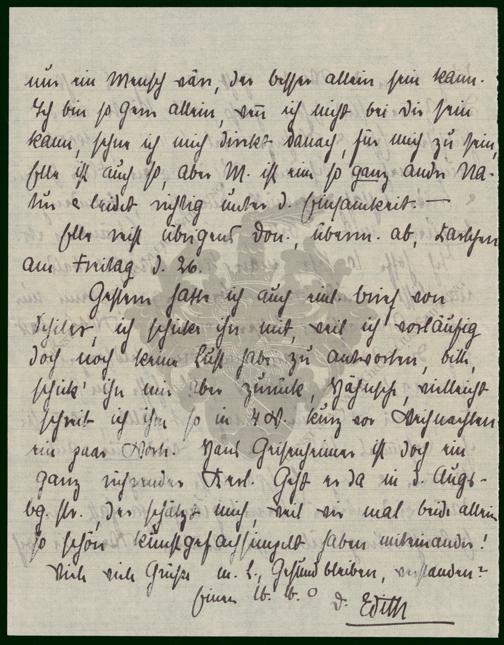 nur ein Mensch wär, der besser allein sein kann.
Ich bin so gern allein, wenn ich nicht bei Dir sein
kann, sehne ich mich direkt danach, für mich zu sein,
Elle ist auch so, aber M. ist eine so ganz andre Na-
tur & leidet richtig unter d. Einsamkeit. —
Elle reist übrigens Don., überm. ab,
am Freitag d. 26.
Gestern hatte ich auch mal brief von
ich schicke ihn mit, weil ich vorläufig
doch noch keine Lust habe zu antworten, bitte,
schick' ihn mir aber zurück, vielleicht
schreib ich ihm so in 4 W. kurz vor Weihnachten
ein paar Worte. Hans Geisenheimer ist doch ein
ganz rührender Kerl. Geht er da in d. Augs-
bg. str., der schätzt mich, weil wir mal beide allein
so schön kunstgefachsimpelt haben miteinander!
Viele viele Grüsse m. L., Gesund bleiben, verstanden?
Einen
d. Edith